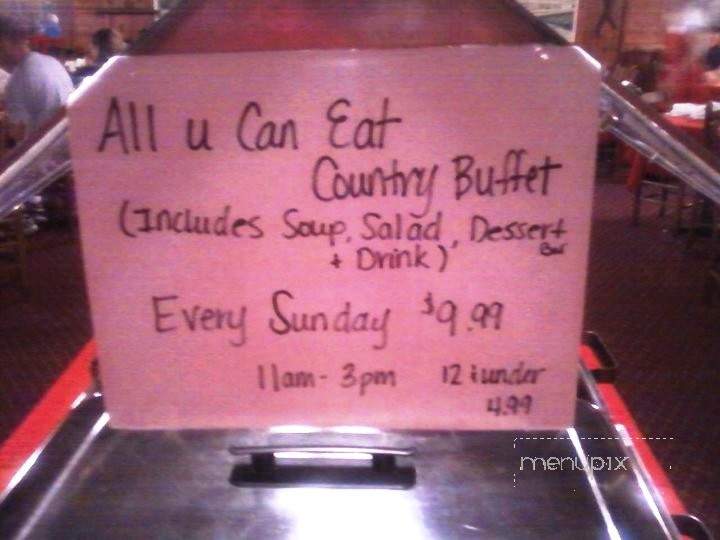 All u Can Eat
Country Buffet
(Includes Soup, Salad, Dessert Bar
+ Drink)
Every Sunday $9.99
11am - 3pm 12 & under
4.99
menupix